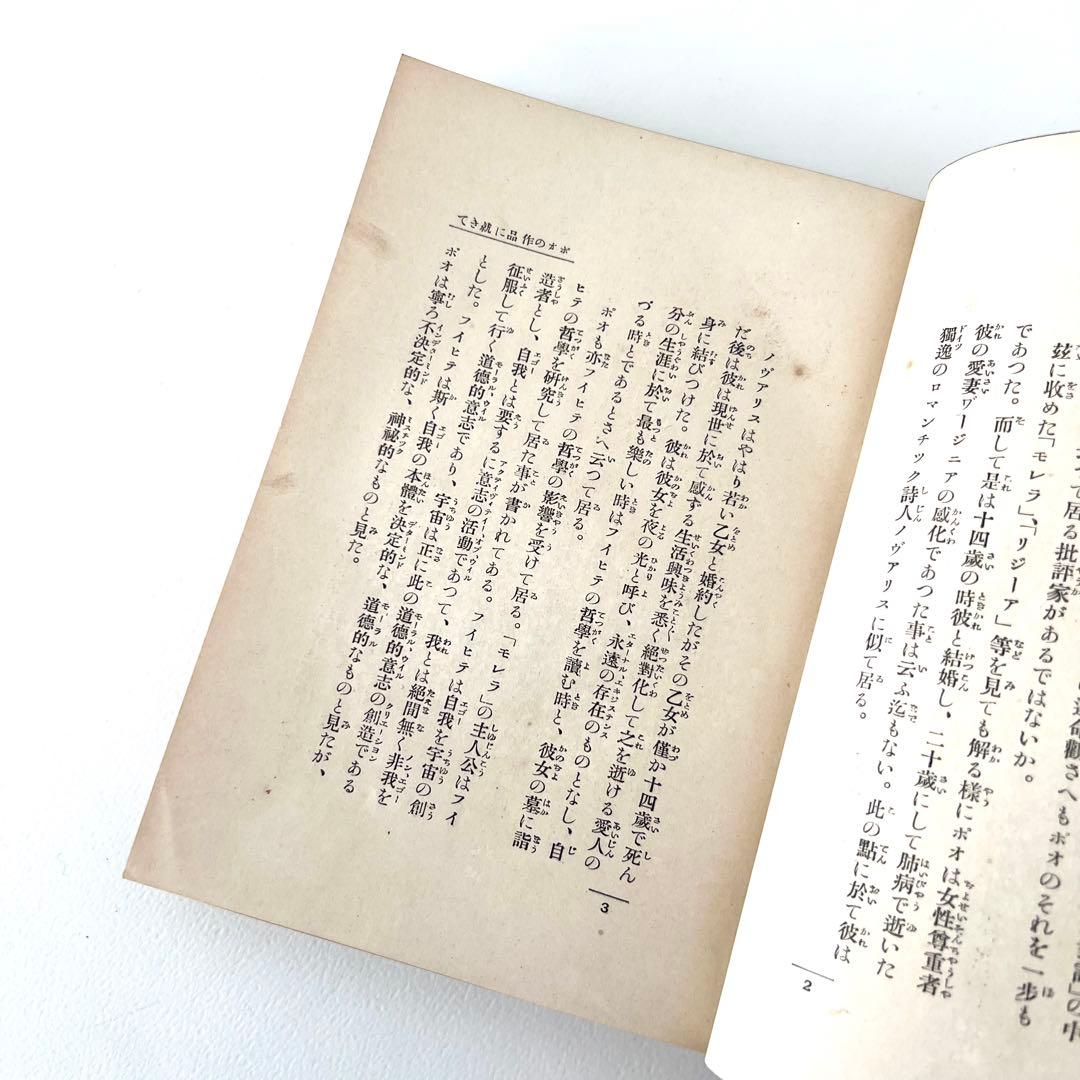 て居る批評家があるではないか。
玆に收めた「モレラ」、「リジーア」等を見ても解る樣にポオは女性尊重者
であつた。而して是は十四歲の時彼と結婚し、二十歲にして肺病で逝いた
彼の愛妻ヷージニアの感化であつた事は云ふ迄もない。此の點に於て彼は
獨逸のロマンチック詩人ノヴアリスに似て居る。
2
ポオの作品に就きて
ノヴアリスはやはり若い乙女と婚約したがその乙女が僅か十四歲で死ん
だ後は彼は現世に於て感ずる生活興味を悉く絕對化して之を逝ける愛人の
身に結びつけた。彼は彼女を夜の光と呼び、永遠の存在のものとなし、自
分の生涯に於て最も樂しい時はフイヒテの哲學を讀む時と、彼女の墓に詣
づる時とであるとさへ云つて居る。
ポオも亦フイヒテの哲學の影響を受けて居る。「モレラ」の主人公はフイ
ヒテの哲學を硏究して居た事が書かれてある。フイヒテは自我を宇宙の創
造者とし、自我とは要するに意志の活動であつて、我とは絕間無く非我を
征服して行く道德的意志であり、宇宙は正に此の道德的意志の創造である
とした。フイヒテは斯く自我の本體を決定的な、道德的なものと見たが、
ポオは寧ろ不決定的な、神祕的なものと見た。
3